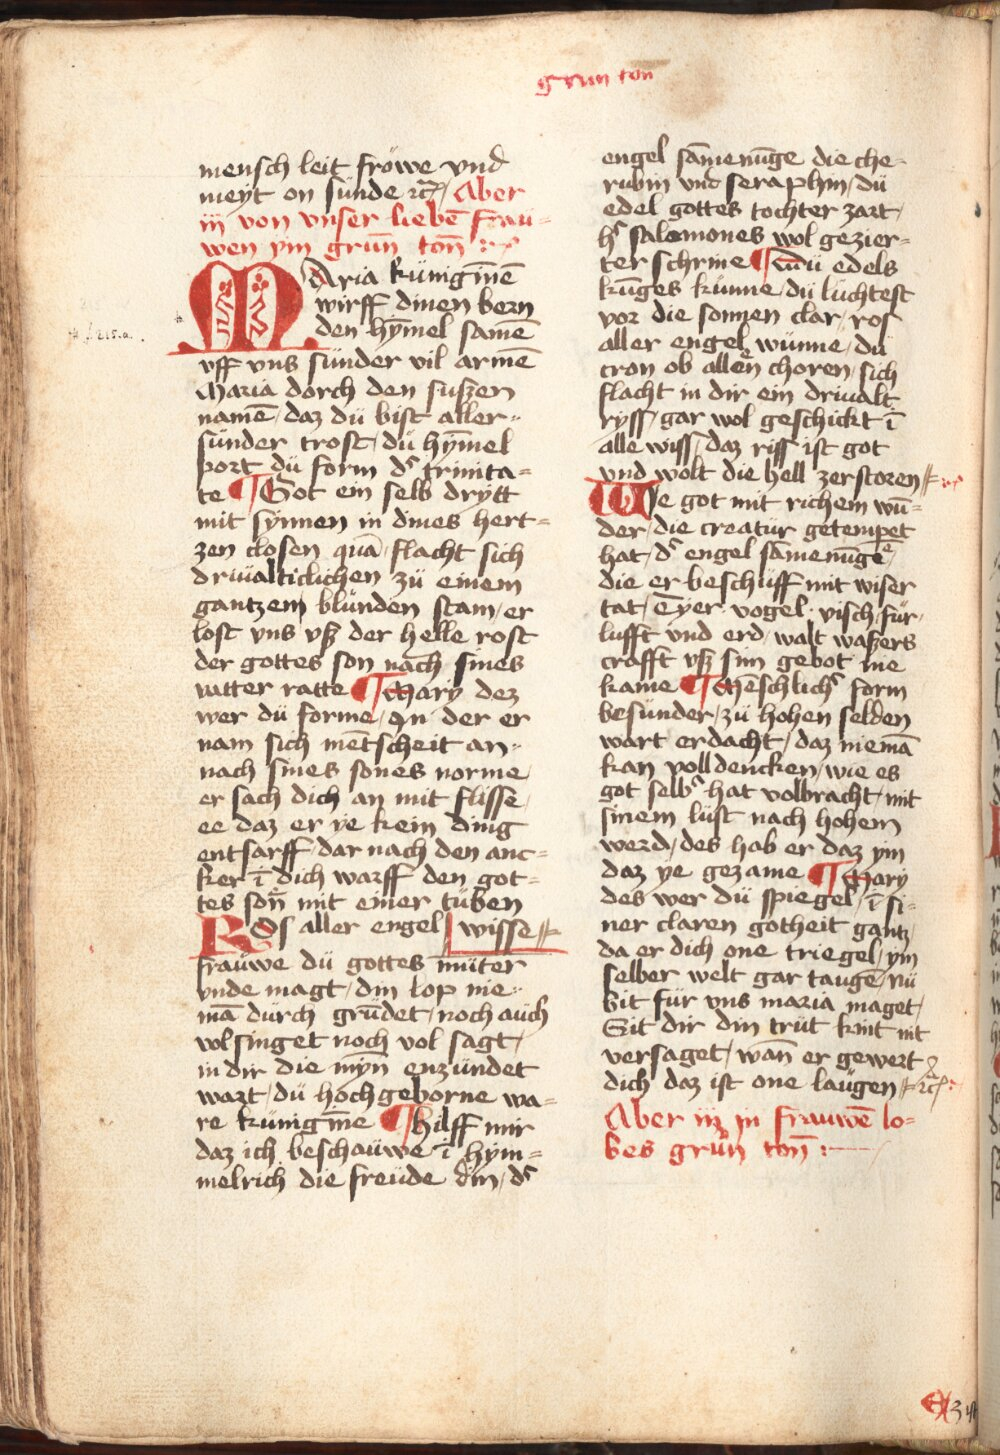 grun ton
mensch leit fröwe vnd
meyt on sünde ꝛc̄ / Aber
iij von vnser liebē frau=
wen ym grün̄ ton̄
MAria künigīnē
wirff dinen bern
den hÿmel samē
vff vns sünder vil armē
Maria dorch den suszen
namē / daz dü bist aller=
sünder trost / dü hÿmel
port dü form dˢ trinita=
te ¶ Got ein selb drÿtt
mit sÿnnen in dines hert=
zen closen quā / flacht sich
driualticlichen zü einem
gantzem blünden stam / er
lost vns vsz der helle rost
der gottes son nach sines
vatter ratte ¶ Mary dez
wer dü forme / In der er
nam sich mētscheit an=
nach sines sones norme /
er sach dich an mit flisse /
ee daz er ye kein ding
entsarff / dar nach den anc=
ker ī dich warff den got=
tes son̄ mit einer tüben
ROs aller engel wisse
frauwe dü gottes müter
vnde magt / din lop nie=
mā dürch grūdet / noch aüch
vol singet noch vol sagt /
in dir die myn̄ enzündet
wart / dü hochgeborne wa=
re künigīne ¶ hilff mir
daz ich beschauwe ī hÿm=
melrich die freüde din / dˢ
engel sāmenūge die che=
rubin vnd seraphin / dü
edel gottes tochter zart /
hˢ salamones wol gezier=
ter schrine ¶ Wü edels
kūges künne / dü lüchtest
vor die sonnen clar / ros
aller engel wünne / dü
cron ob allen choren / sich
flacht in dir ein driualt
ryss / gar wol geschickt ī
alle wiss / daz riss ist got
vnd wolt die hell zerstoren
WIe got mit richem wū=
der / die creatür getempet
hat / dˢ engel sāmenūge
die er beschüff mit wiser
tat / Tyer vogel / visch / für /
lufft vnd erd / walt waszers
crafft vsz sim gebot me
kame ¶ Mēschlichˢ form
besünder / zü hohen selden
wart erdacht / daz niemā
kan volldencken / wie es
got selbˢ hat volbracht / mit
sinem lüst nach hohem
werd / des hab er daz ym
daz ye gezame ¶ Mary
des wer dü spiegel / ī si=
ner claren gotheit gantz /
da er dich one triegel / ym
selber welt gar taugē / nü
bit für vns maria maget /
Sit dir din trüt kint nit
versaget / wan̄ er gewert
dich daz ist one laügen ꝛc̄
Aber iij in frauwē lo=
bes grün̄ ton̄